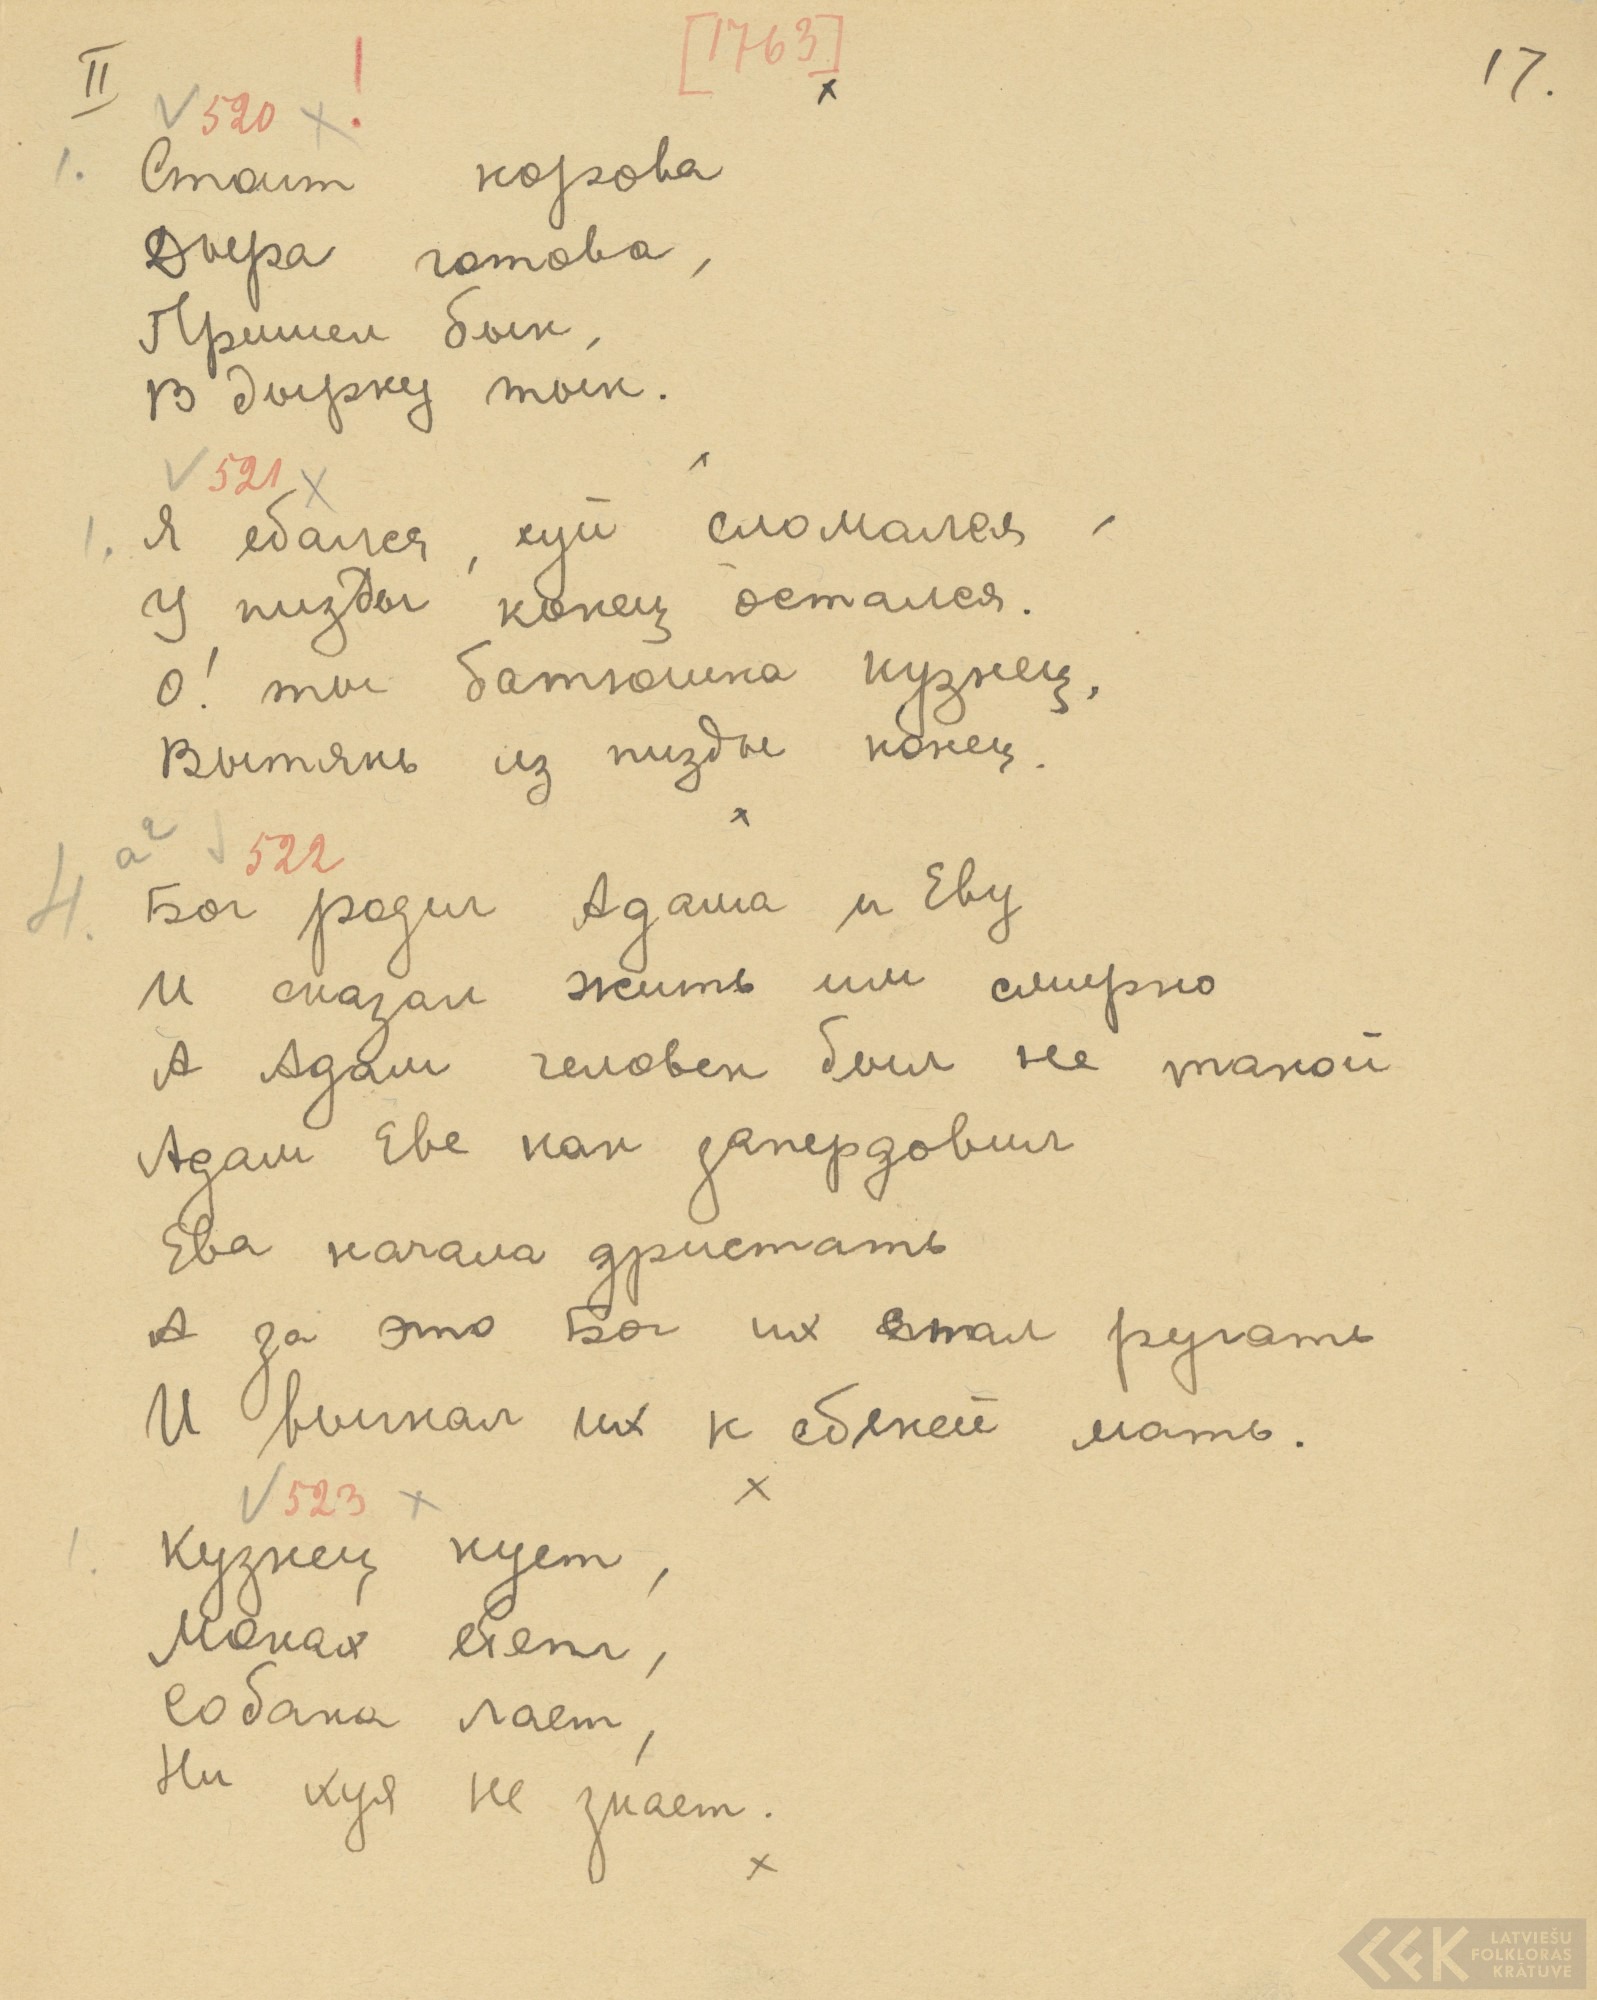 II [1763] 17.
x
√ 520 x !
1. Стоит корова
Дыра готова,
Пришел бык,
В дырку тык.
√ 521 x
1. Я ебался, хуй сломался
У пизды конец остался.
О! ты батюшка кузнец,
Вытянь из пизды конец.
x
4. а² √ 522
Бог родил Адама и Еву
И сказал жить им смирно
А Адам человек был не такой
Адам Еве как запердовил
Ева начала дристать
А за это Бог их стал ругать
И выгнал их к ебеней мать.
x
√ 523 x
1. Кузнец кует,
Монах ебет,
Собака лает,
Ни хуя не знает.
x
LATVIEŠU
FOLKLORAS
KRĀTUVE